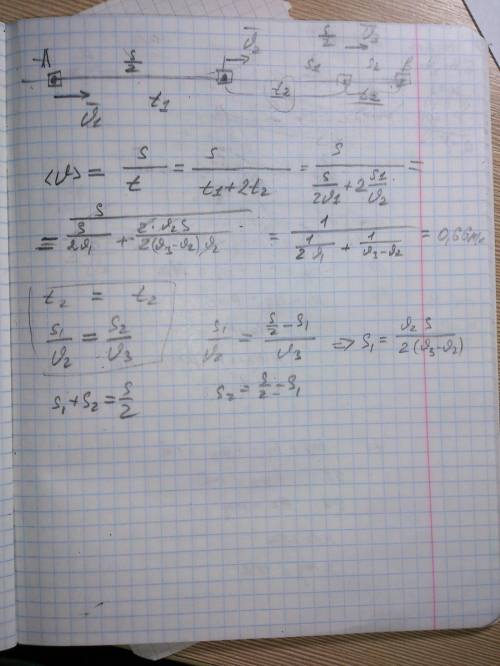 A S/2 ϑ̄₂ S/2 ϑ̄₃
S₁ S₂ B
ϑ̄₁ t₁ t₂ t₂
<ϑ> = S/t = S/(t₁+2t₂) = S/(S/2ϑ₁ + 2 S₁/ϑ₂) =
= S/(S/2ϑ₁ + 2·ϑ₂S/2(ϑ₃-ϑ₂)ϑ₂) = 1/(1/2ϑ₁ + 1/ϑ₃-ϑ₂) = 0,66
t₂ = t₂
S₁/ϑ₂ = S₂/ϑ₃ S₁/ϑ₂ = (S/2 - S₁)/ϑ₃ => S₁ = ϑ₂S/2(ϑ₃-ϑ₂)
S₁+S₂ = S/2 S₂ = S/2 - S₁